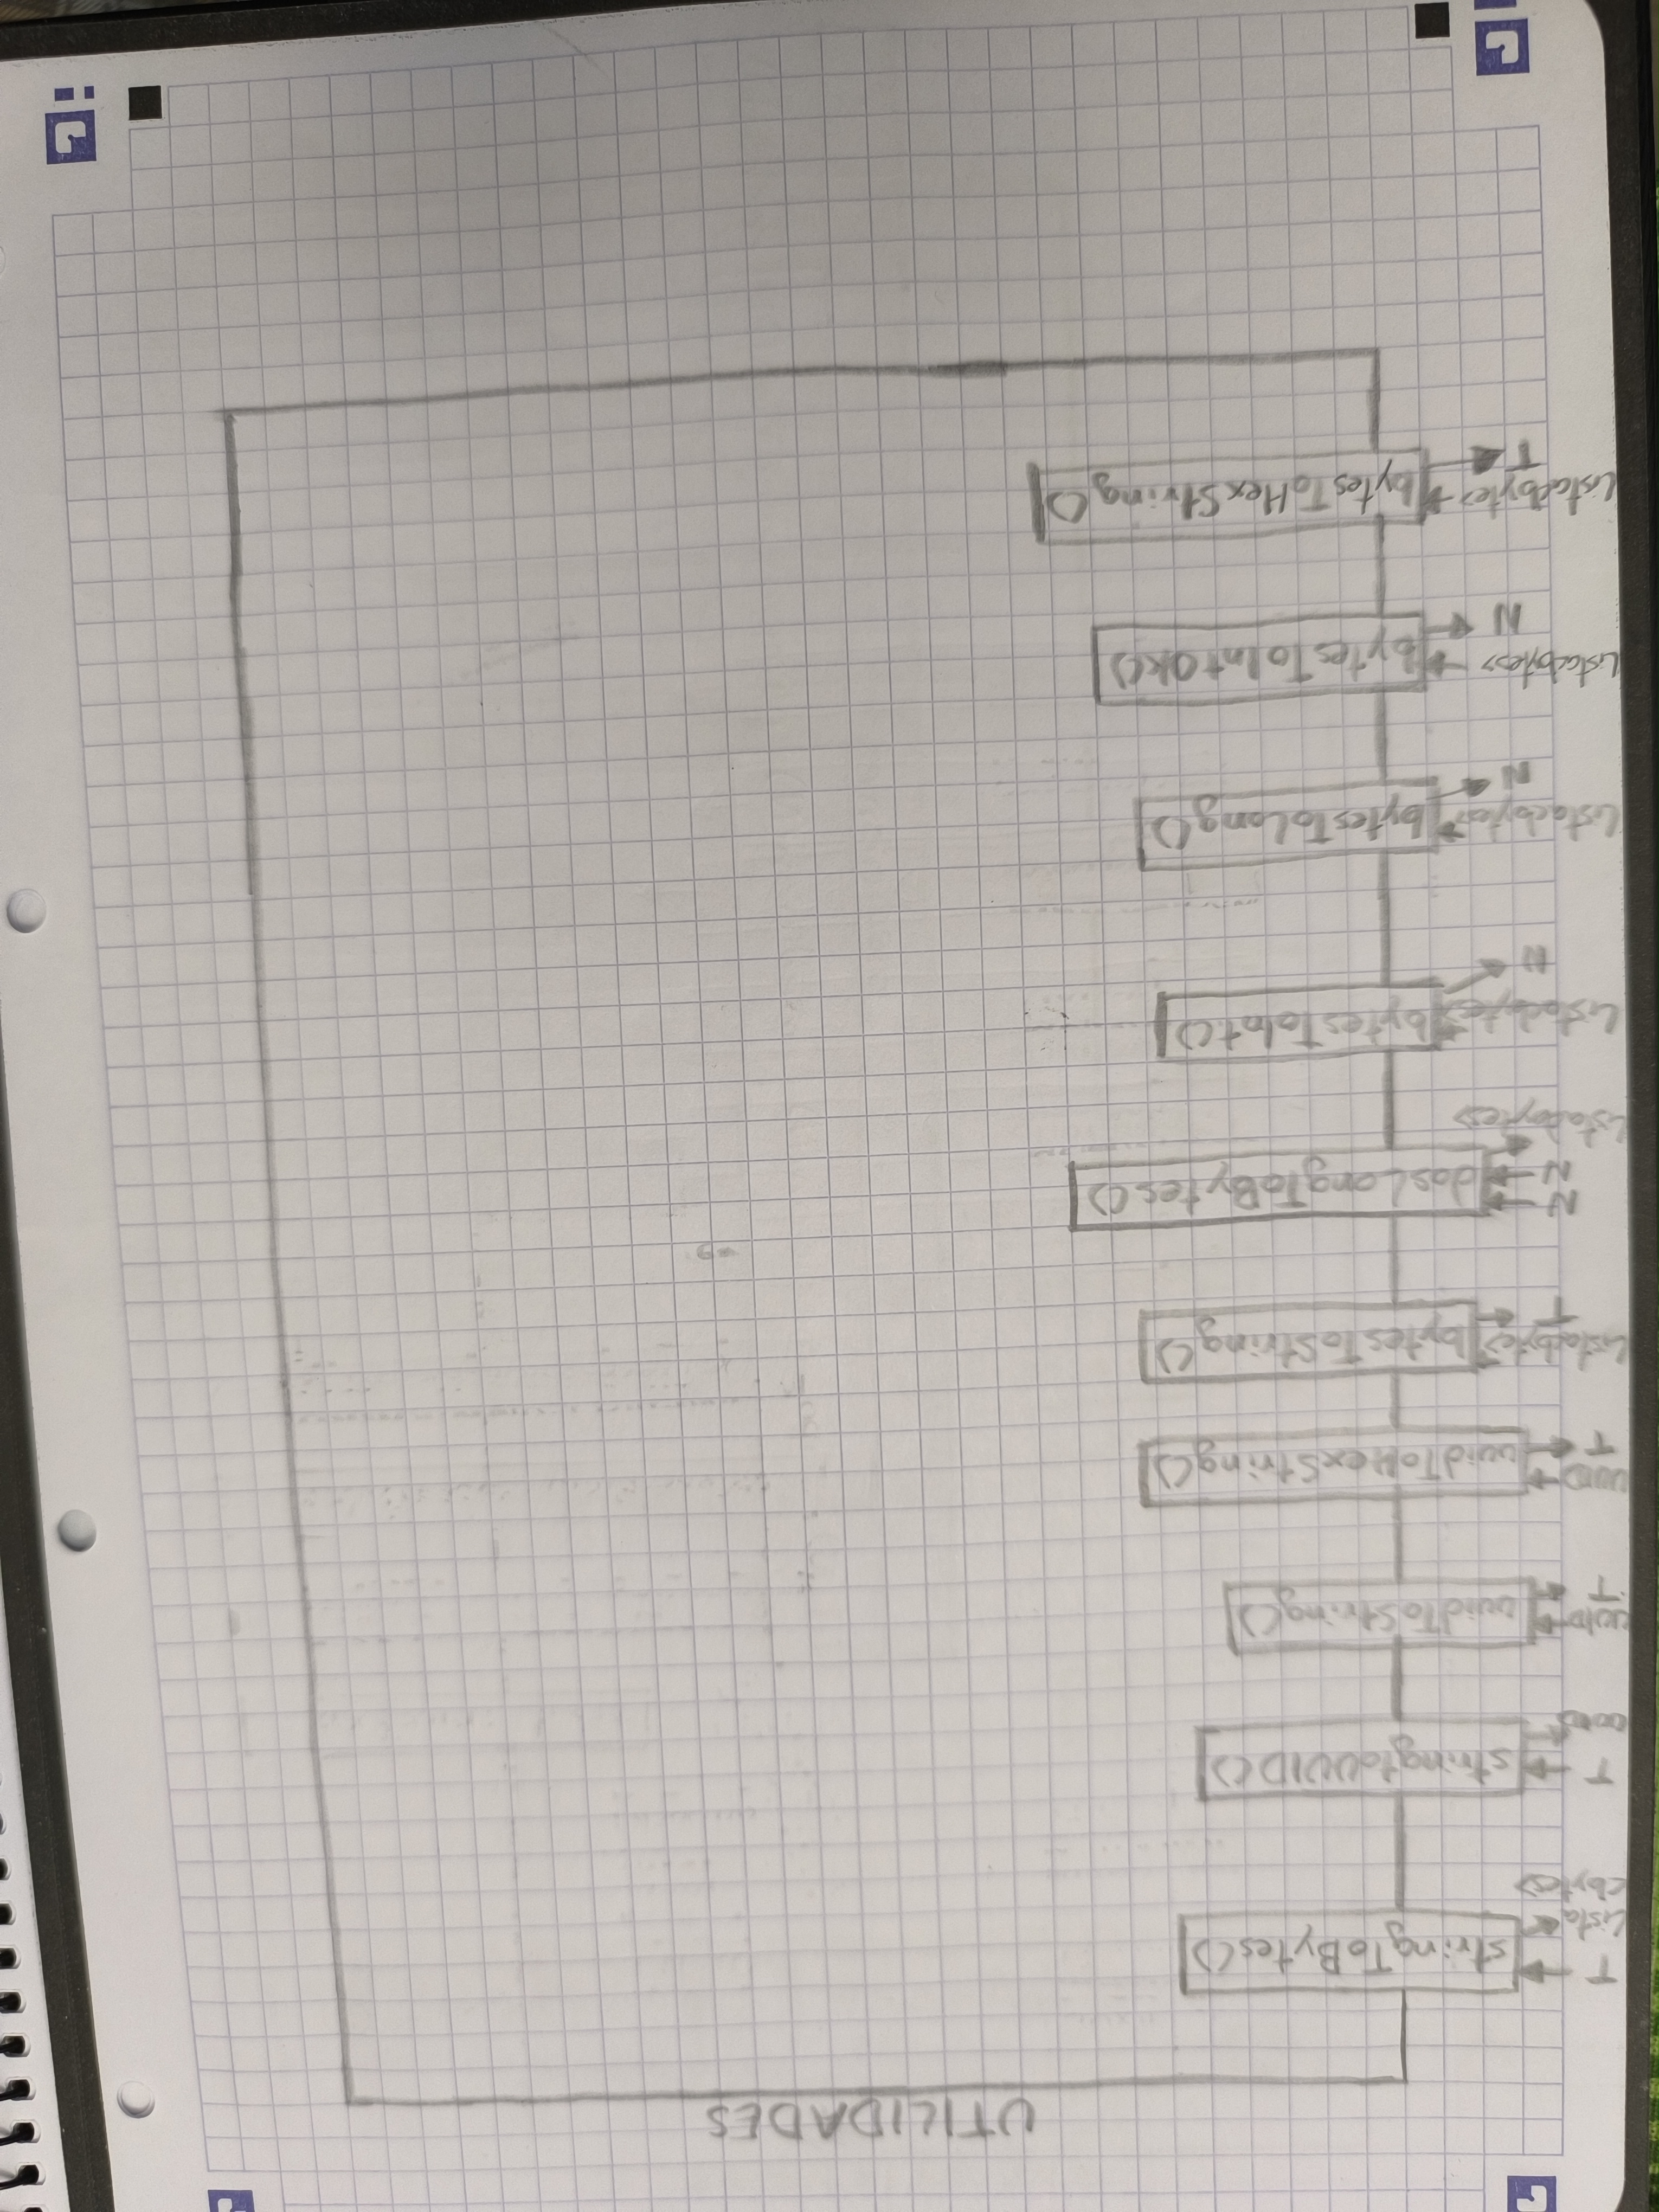 UTILIDADES
T
stringToBytes()
Lista
<bytes>
T
stringtoUUID()
UUID
UUID
uuidToString()
T
UUID
uuidToHexString()
T
Lista<bytes>
bytesToString()
T
N
N
dosLongToBytes()
Lista<bytes>
Lista<bytes>
bytesToInt()
N
Lista<bytes>
bytesToLong()
N
Lista<bytes>
bytesToIntOk()
N
Lista<bytes>
bytesToHexString()
T